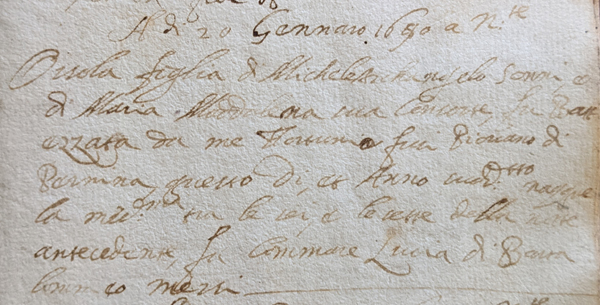 A di 20 Gennaro 1690 a N.te
Orsola figlia di Michelett Angelo Senni e
di Maria Maddalena sua Consorte fu Batt
ezzata da me Fortun Piovano di
questo di, et Anno sud.tto nacque
la med.ma tra le sei e le sette della notte
antecedente, fu Commare Lucia di Barto
lommeo